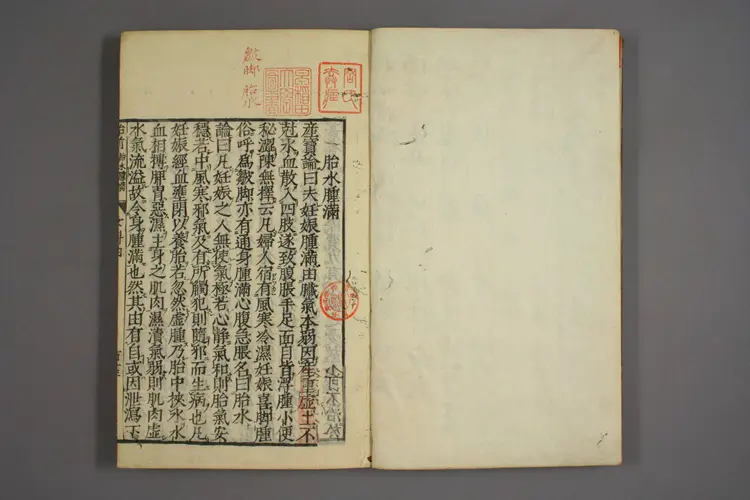 皺脚 胎水
一胎水腫滿
産寶論曰夫妊娠腫滿由臟氣本弱因産重虛土不
尅水血散入四肢遂致腹脹手足面目皆浮腫小便
秘澁陳無擇云凡婦人宿有風寒冷濕妊娠喜脚腫
俗呼爲皺脚亦有通身腫滿心腹急脹名曰胎水
論曰凡妊娠之人無使氣極若心靜氣和則胎氣安
穩若中風寒邪氣及有所觸犯則隨邪而生病也凡
妊娠經血壅閉以養胎若忽然虛腫乃胎中挾水水
血相搏脾胃惡濕主身之肌肉濕漬氣弱則肌肉虛
水氣流溢故令身腫滿也然其由有自或因泄瀉下